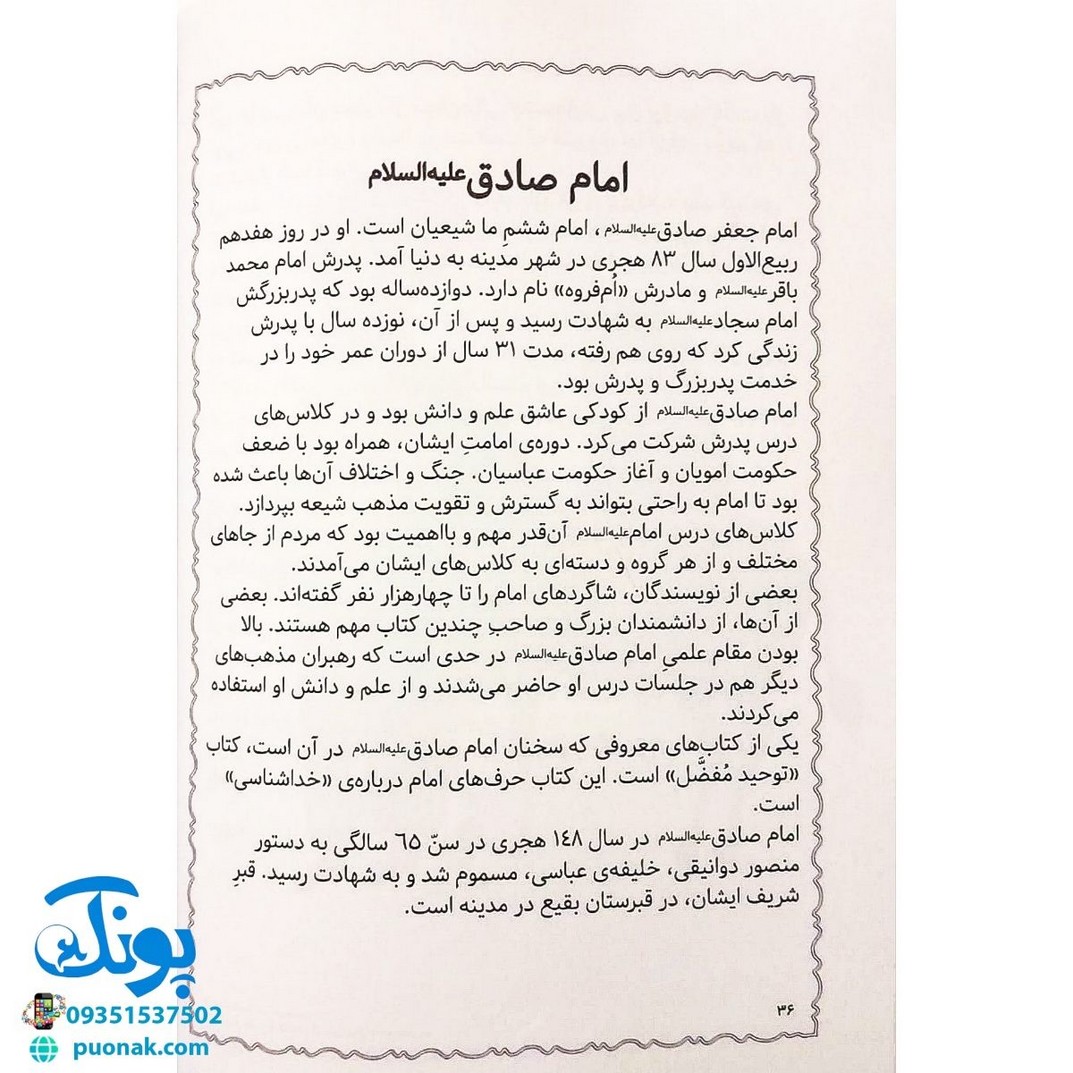 امام صادق علیه‌السلام
امام جعفر صادق علیه‌السلام، امام ششمِ ما شیعیان است. او در روز هفدهم
ربیع‌الاول سال ۸۳ هجری در شهر مدینه به دنیا آمد. پدرش امام محمد
باقر علیه‌السلام و مادرش «اُم‌فروه» نام دارد. دوازده‌ساله بود که پدربزرگش
امام سجاد علیه‌السلام به شهادت رسید و پس از آن، نوزده سال با پدرش
زندگی کرد که روی هم رفته، مدت ۳۱ سال از دوران عمر خود را در
خدمت پدربزرگ و پدرش بود.
امام صادق علیه‌السلام از کودکی عاشق علم و دانش بود و در کلاس‌های
درس پدرش شرکت می‌کرد. دوره‌ی امامتِ ایشان، همراه بود با ضعف
حکومت امویان و آغاز حکومت عباسیان. جنگ و اختلاف آن‌ها باعث شده
بود تا امام به راحتی بتواند به گسترش و تقویت مذهب شیعه بپردازد.
کلاس‌های درس امام علیه‌السلام آن‌قدر مهم و بااهمیت بود که مردم از جاهای
مختلف و از هر گروه و دسته‌ای به کلاس‌های ایشان می‌آمدند.
بعضی از نویسندگان، شاگردهای امام را تا چهارهزار نفر گفته‌اند. بعضی
از آن‌ها، از دانشمندان بزرگ و صاحبِ چندین کتاب مهم هستند. بالا
بودن مقام علمیِ امام صادق علیه‌السلام در حدی است که رهبران مذهب‌های
دیگر هم در جلسات درس او حاضر می‌شدند و از علم و دانش او استفاده
می‌کردند.
یکی از کتاب‌های معروفی که سخنان امام صادق علیه‌السلام در آن است، کتاب
«توحید مُفضَّل» است. این کتاب حرف‌های امام درباره‌ی «خداشناسی»
است.
امام صادق علیه‌السلام در سال ۱٤۸ هجری در سنّ ٦٥ سالگی به دستور
منصور دوانیقی، خلیفه‌ی عباسی، مسموم شد و به شهادت رسید. قبرِ
شریف ایشان، در قبرستان بقیع در مدینه است.
۳۶
پونک
09351537502
puonak.com